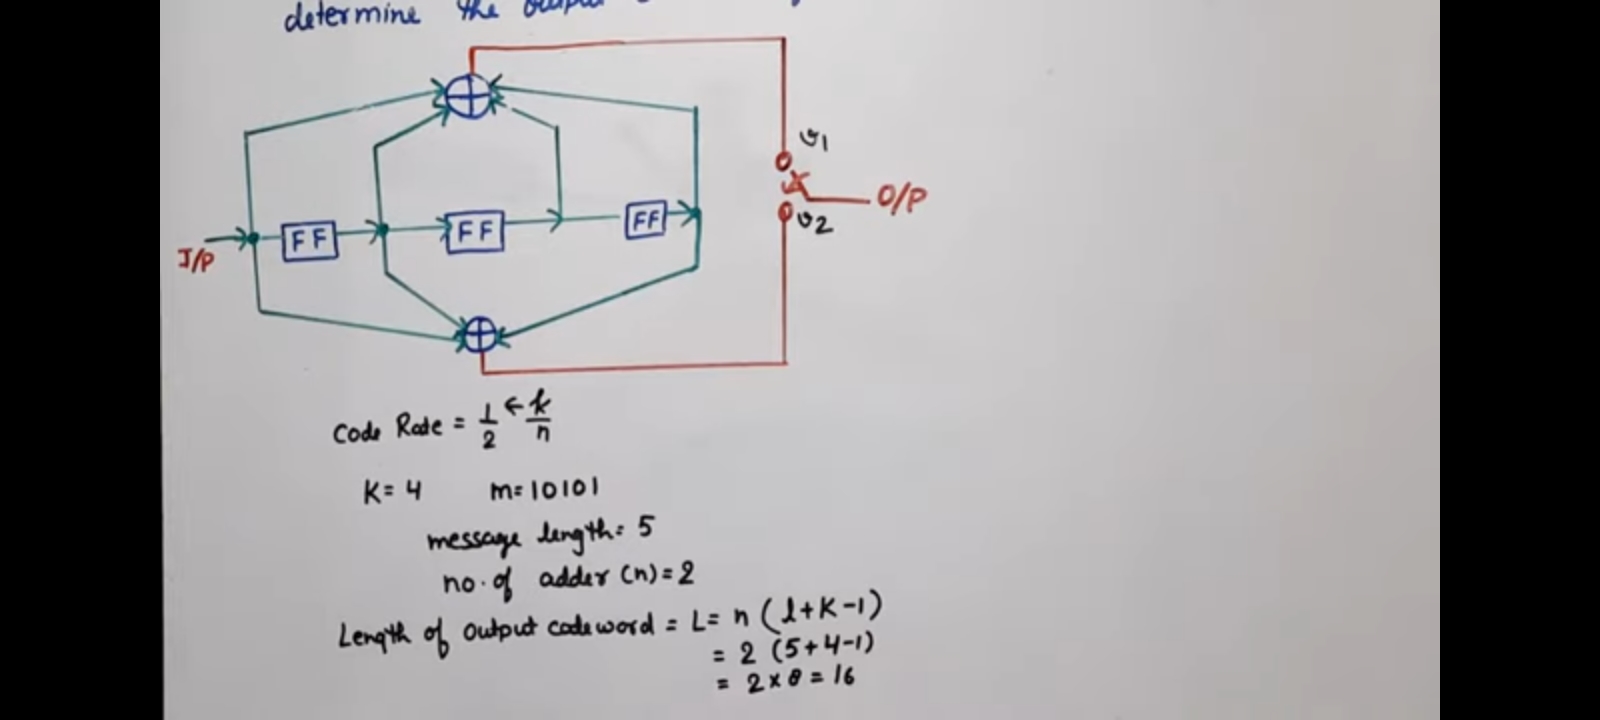 determine the output
v1
O/P
v2
I/P
FF
FF
FF
Code Rate = 1/2 ← k/n
K= 4 m= 10101
message length= 5
no. of adder (n) = 2
Length of output codeword = L= n (l+K-1)
= 2 (5+4-1)
= 2 x 8 = 16